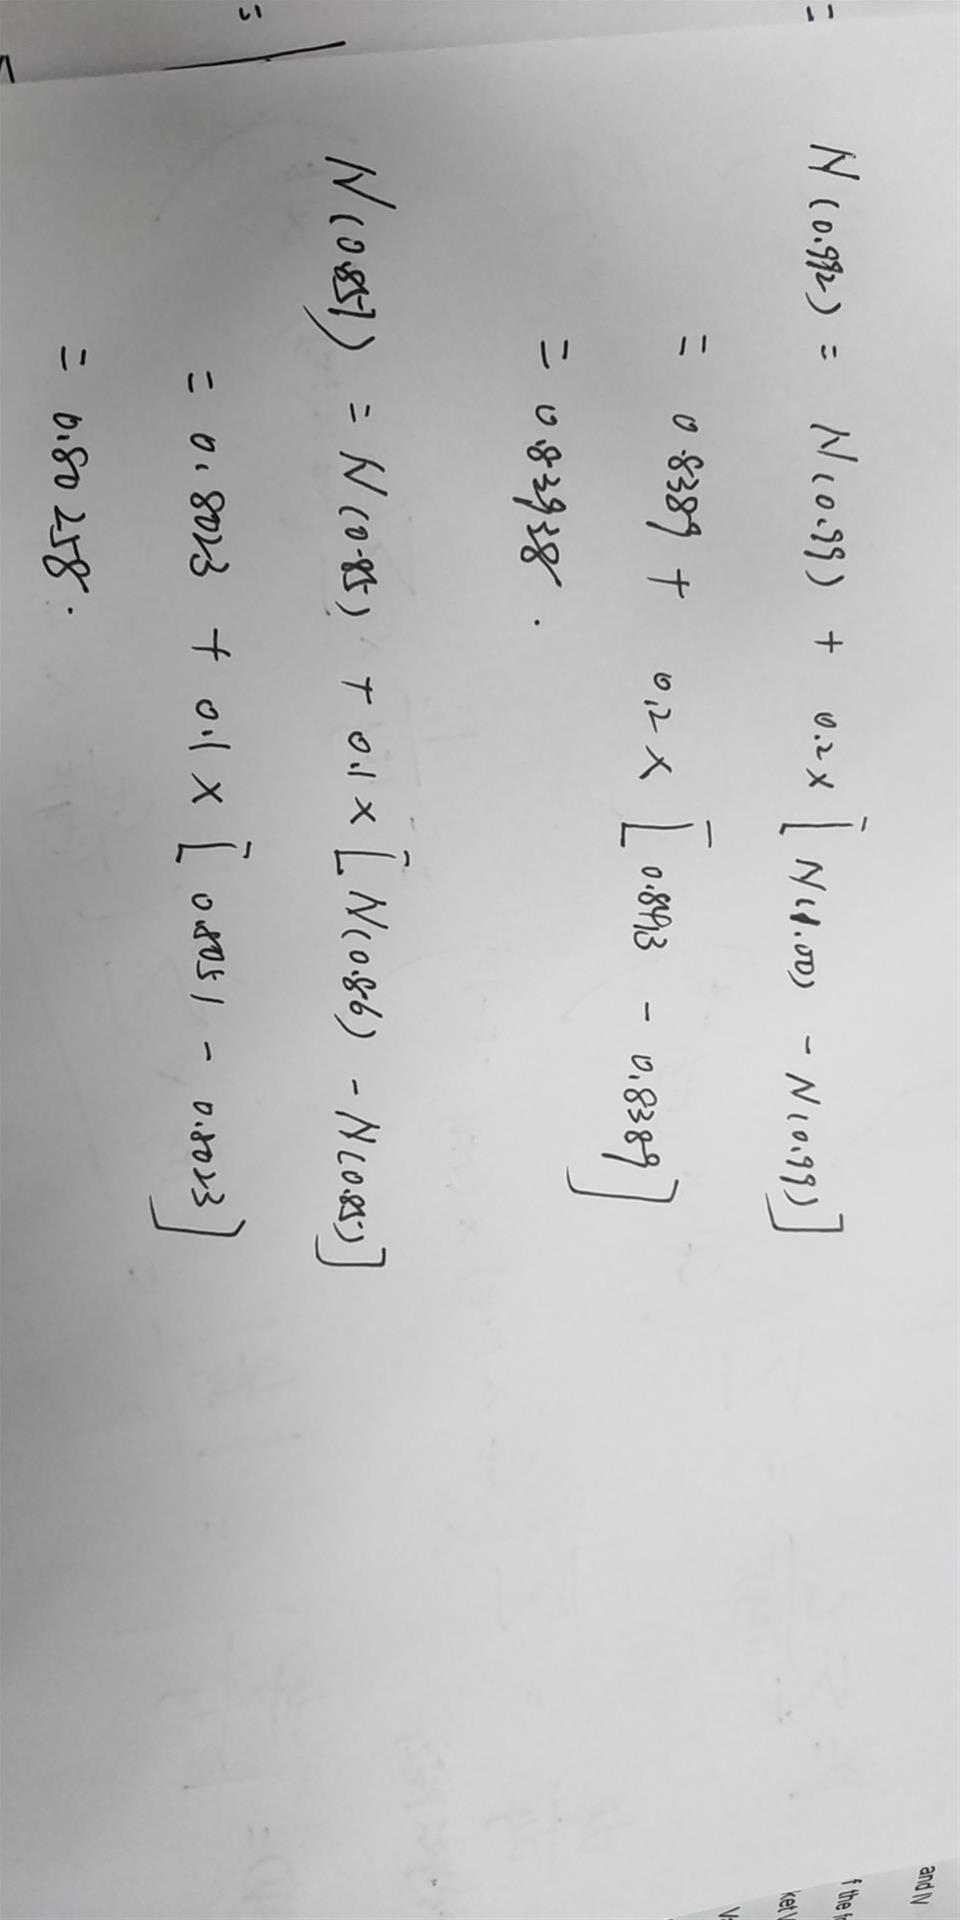 N(0.992) = N(0.99) + 0.2 × [N(1.00) - N(0.99)]
= 0.8389 + 0.2 × [0.8413 - 0.8389]
= 0.83938.
N(0.851) = N(0.85) + 0.1 × [N(0.86) - N(0.85)]
= 0.8023 + 0.1 × [0.8051 - 0.8023]
= 0.80258.
and IV
f the
ket V